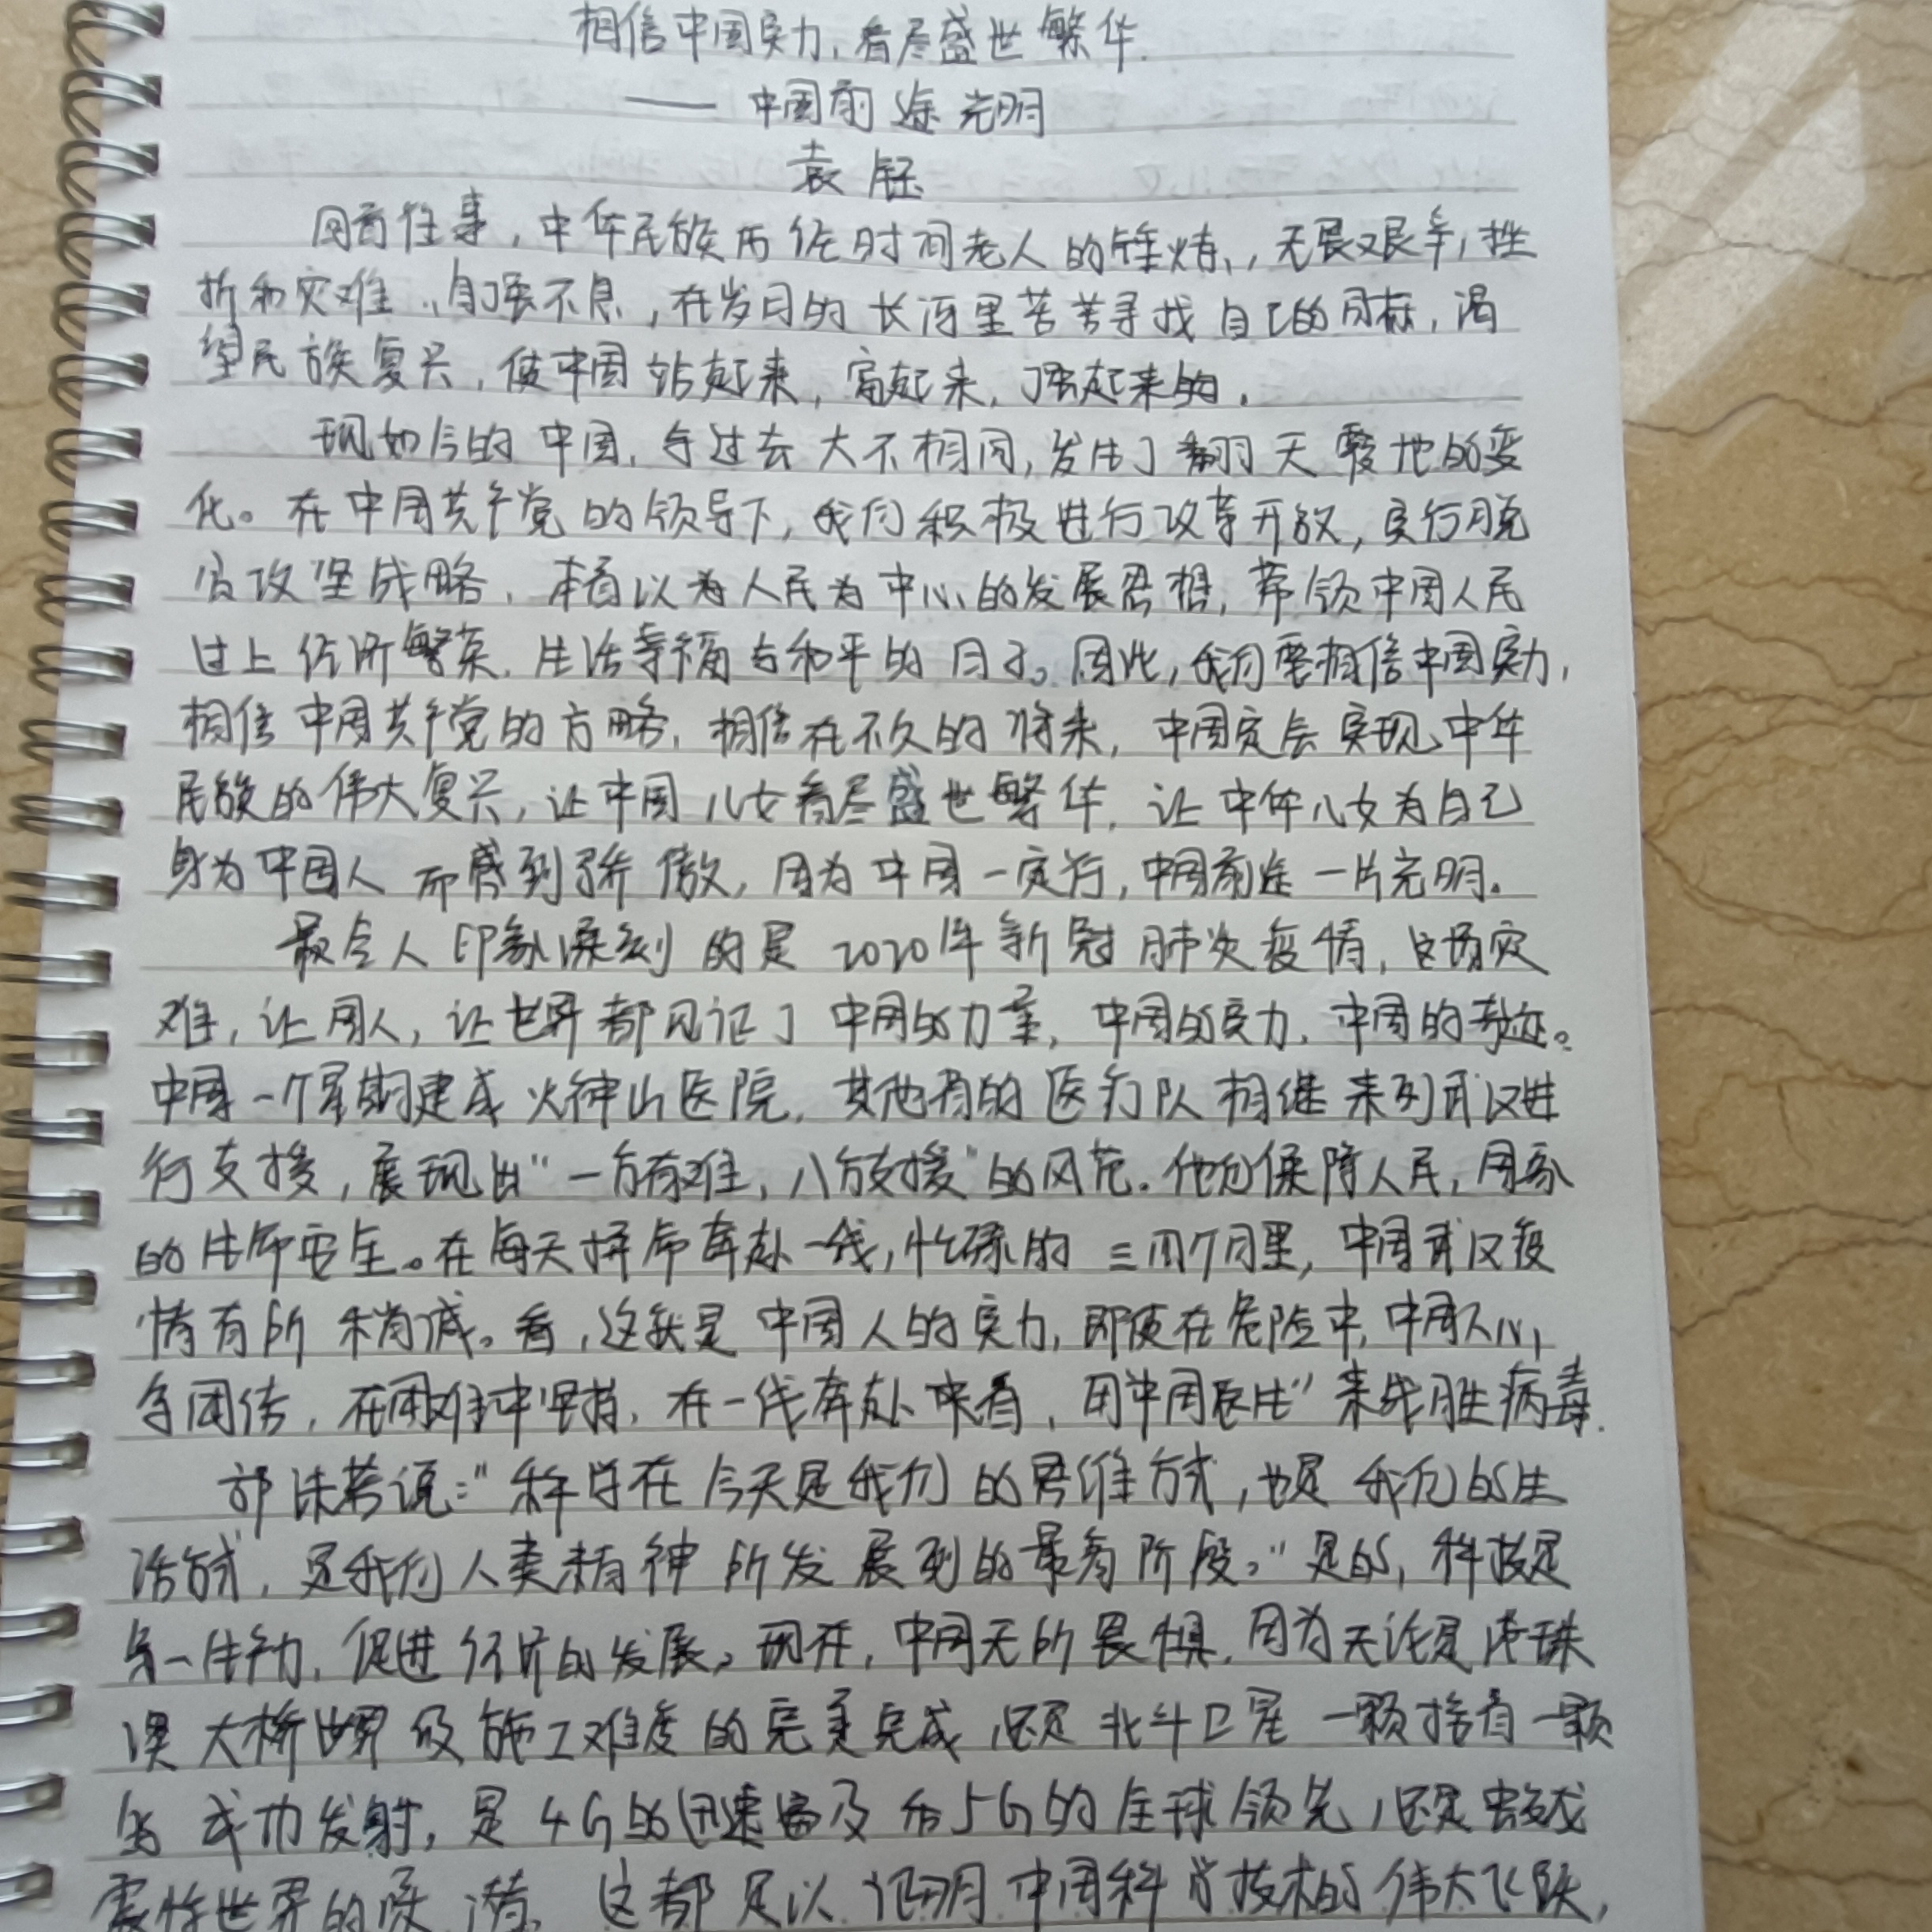 相信中国实力,看尽盛世繁华.
—— 中国前途光明
袁钰
回首往事,中华民族历经时间老人的锤炼,,无畏艰辛,挫
折和灾难,,自强不息,在岁月的长河里苦苦寻找自己的目标,渴
望民族复兴,使中国站起来,富起来,强起来的.
现如今的中国,与过去大不相同,发生了翻天覆地的变
化。在中国共产党的领导下,我们积极进行改革开放,实行脱
贫攻坚战略,本着以为人民为中心的发展思想,带领中国人民
过上经济繁荣,生活幸福与和平的日子。因此,我们要相信中国实力,
相信中国共产党的方略,相信在不久的将来,中国定会实现中华
民族的伟大复兴,让中国儿女看尽盛世繁华,让中华儿女为自己
身为中国人而感到骄傲,因为中国一定行,中国前途一片光明。
最令人印象深刻的是2020年新冠肺炎疫情,这场灾
难,让国人,让世界都见证了中国的力量,中国的实力,中国的奇迹。
中国一个星期建成火神山医院,其他省的医疗队相继来到武汉进
行支援,展现出“一方有难,八方支援”的风范.他们保障人民,国家
的生命安全。在每天拼命奔赴一线,忙碌的三四个月里,中国武汉疫
情有所稍减。看,这就是中国人的实力,即使在危险中,中国人心
与团结,在困难中坚持,在一线奔赴,用“中国”来战胜病毒.
郭沫若说:“科学在今天是我们的思维方式,也是我们的生
活方式,是我们人类精神所发展到的最高阶段。”是的,科技是
第一生产力,促进经济的发展。现在,中国无所畏惧,因为无论是港珠
澳大桥世界级施工难度的完美完成,还是北斗卫星一颗接着一颗
的成功发射,是4G的迅速普及和5G的全球领先,还是
震惊世界的深潜,这都足以证明中国科学技术的伟大飞跃,